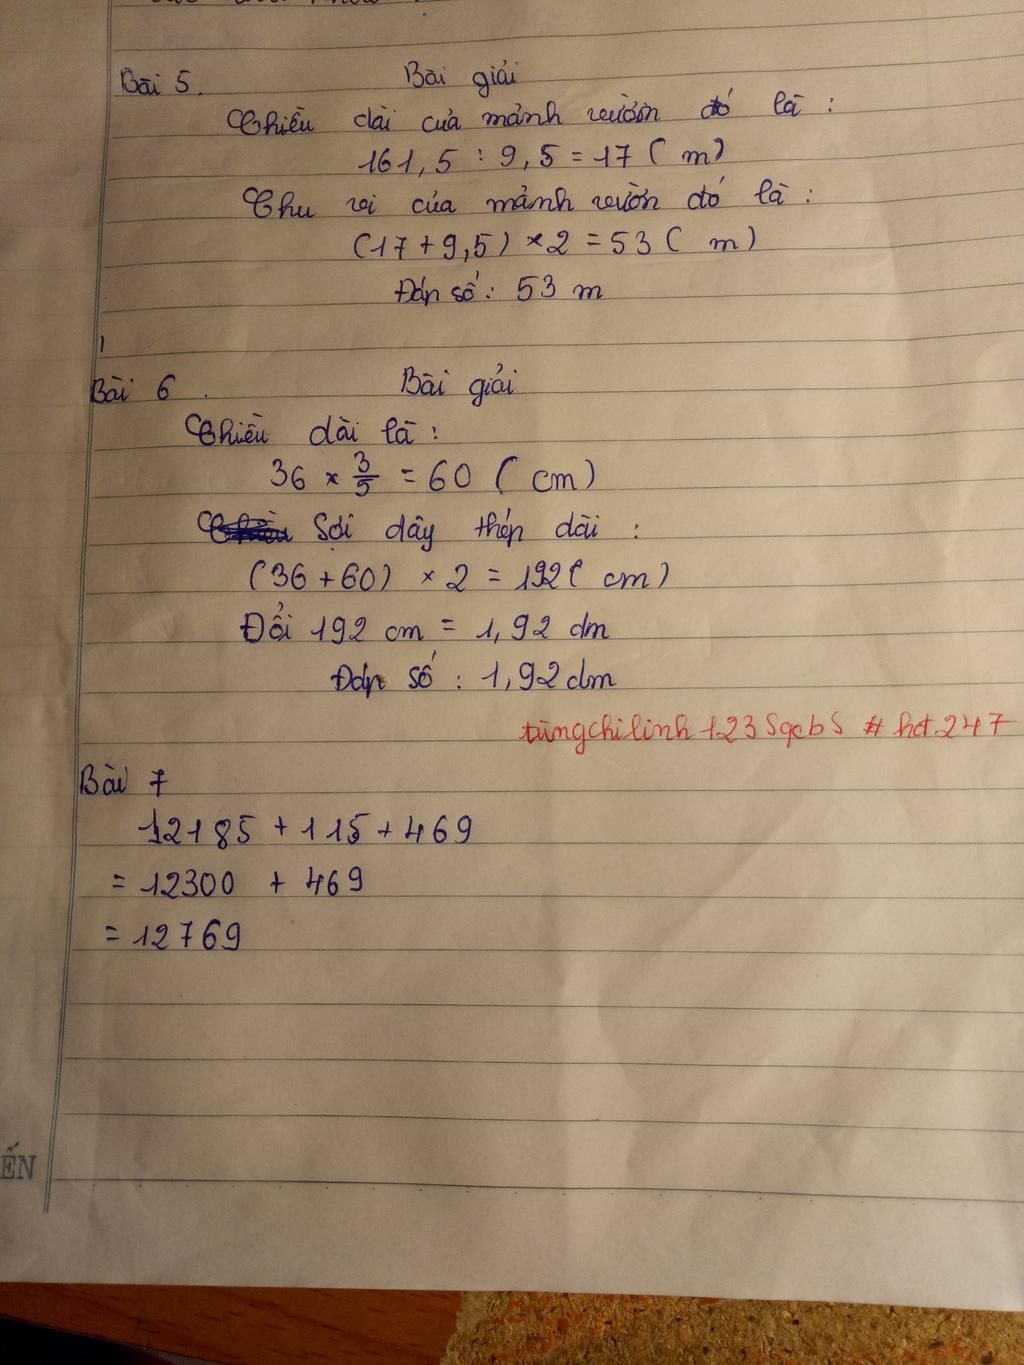 Bài 5. Bài giải
Chiều dài của mảnh vườn đó là :
161,5 : 9,5 = 17 ( m)
Chu vi của mảnh vườn đó là :
(17 + 9,5) × 2 = 53 ( m)
Đáp số : 53 m
Bài 6 . Bài giải
Chiều dài là :
36 × 3/5 = 60 ( cm)
Sợi dây thép dài :
(36 + 60) × 2 = 192 ( cm)
Đổi 192 cm = 1,92 dm
Đáp số : 1,92 dm
Bài 7
12185 + 115 + 469
= 12300 + 469
= 12769
ẾN